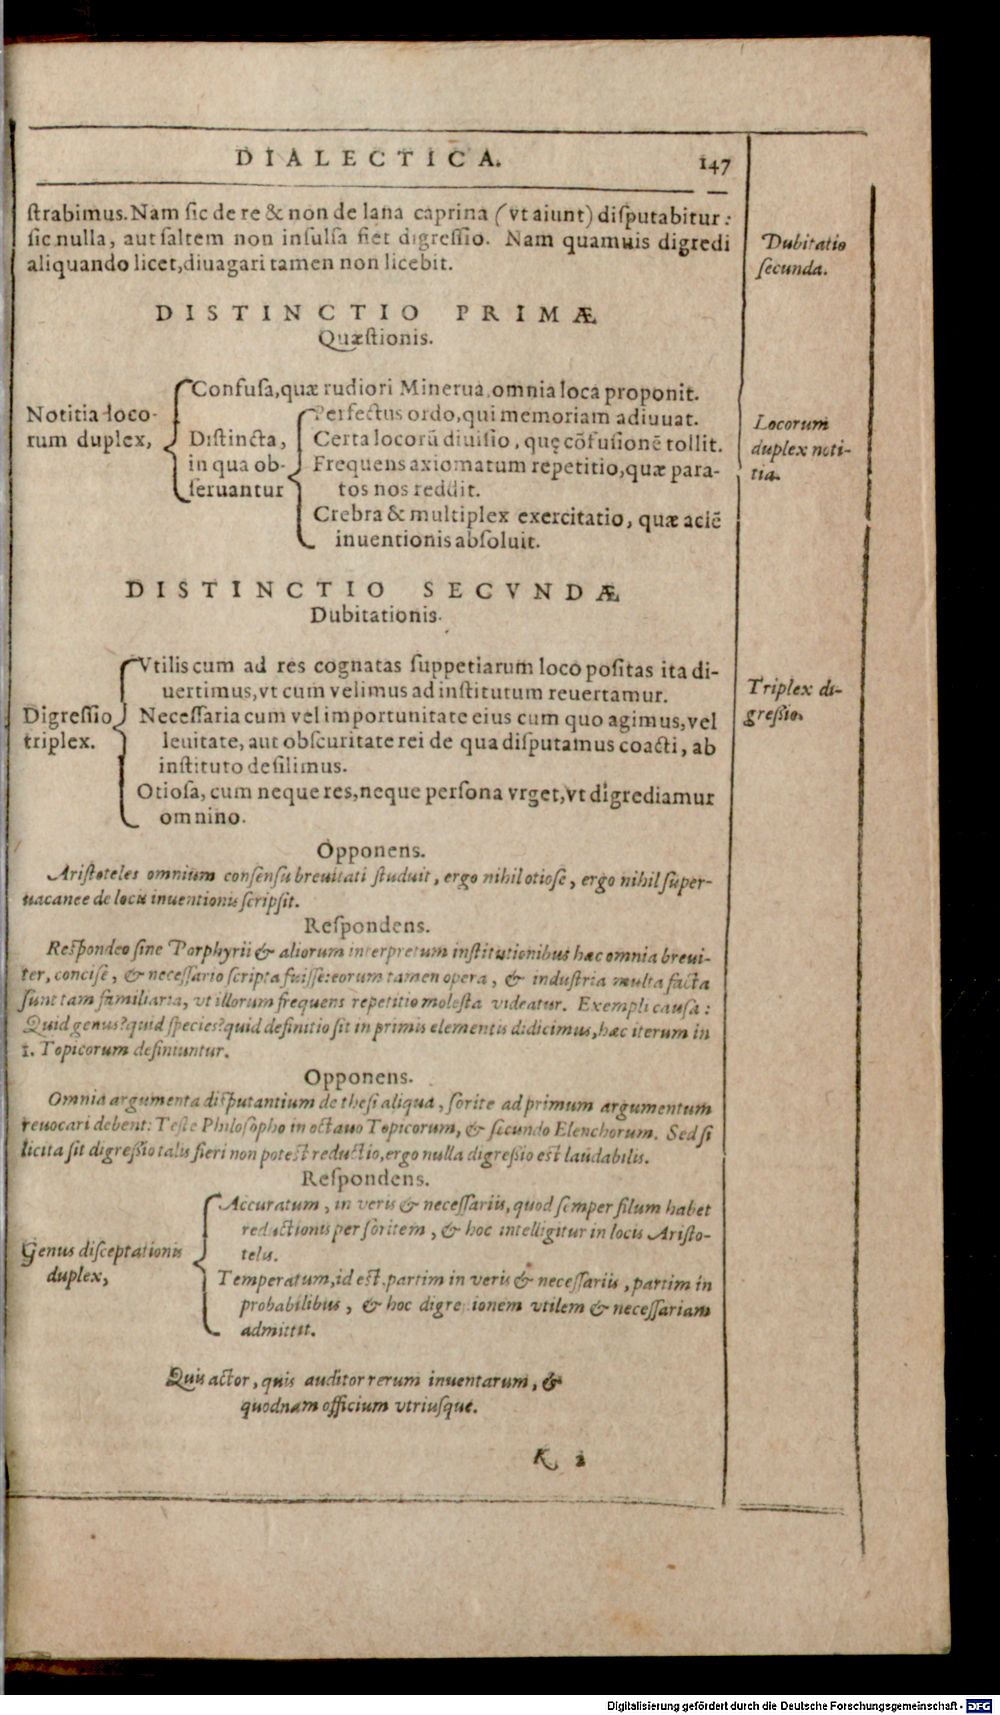 DIALECTICA. 147
ſtrabimus. Nam ſic de re & non de lana caprina (vt aiunt) diſputabitur:
ſic nulla, aut ſaltem non inſulſa fiet digreſſio. Nam quamuis digredi
aliquando licet, diuagari tamen non licebit.
Dubitatio
ſecunda.
DISTINCTIO PRIMÆ
Quæſtionis.
Notitia loco-
rum duplex,
Confuſa, quæ rudiori Minerua, omnia loca proponit.
Diſtincta,
in qua ob-
ſeruantur
Perfectus ordo, qui memoriam adiuuat.
Certa locorū diuiſio, quę cōfuſionē tollit.
Frequens axiomatum repetitio, quæ para-
tos nos reddit.
Crebra & multiplex exercitatio, quæ aciē
inuentionis abſoluit.
Locorum
duplex noti-
tia.
DISTINCTIO SECVNDÆ
Dubitationis.
Digreſſio
triplex.
Vtilis cum ad res cognatas ſuppetiarum loco poſitas ita di-
uertimus, vt cum velimus ad inſtitutum reuertamur.
Neceſſaria cum vel importunitate eius cum quo agimus, vel
leuitate, aut obſcuritate rei de qua diſputamus coacti, ab
inſtituto deſilimus.
Otioſa, cum neque res, neque perſona vrget, vt digrediamur
omnino.
Triplex di-
greſſio.
Opponens.
Ariſtoteles omnium conſenſu breuitati ſtuduit, ergo nihil otioſe, ergo nihil ſuper-
uacanee de locis inuentionis ſcripſit.
Reſpondens.
Reſpondeo ſine Porphyrii & aliorum interpretum inſtitutionibus hæc omnia breui-
ter, conciſe, & neceſſario ſcripta fuiſſe: eorum tamen opera, & induſtria multa facta
ſunt tam familiaria, vt illorum frequens repetitio moleſta videatur. Exempli cauſa:
Quid genus? quid ſpecies? quid definitio ſit in primis elementis didicimus, hæc iterum in
1. Topicorum definiuntur.
Opponens.
Omnia argumenta diſputantium de theſi aliqua, ſorite ad primum argumentum
reuocari debent: Teſte Philoſopho in octauo Topicorum, & ſecundo Elenchorum. Sed ſi
licita ſit digreſſio talis fieri non poteſt reductio, ergo nulla digreſſio eſt laudabilis.
Reſpondens.
Genus diſceptationis
duplex,
Accuratum, in veris & neceſſariis, quod ſemper filum habet
reductionis per ſoritem, & hoc intelligitur in locis Ariſto-
telis.
Temperatum, id eſt, partim in veris & neceſſariis, partim in
probabilibus, & hoc digreſſionem vtilem & neceſſariam
admittit.
Quis actor, quis auditor rerum inuentarum, &
quodnam officium vtriuſque.
K 2
Digitalisierung gefördert durch die Deutsche Forschungsgemeinschaft - DFG